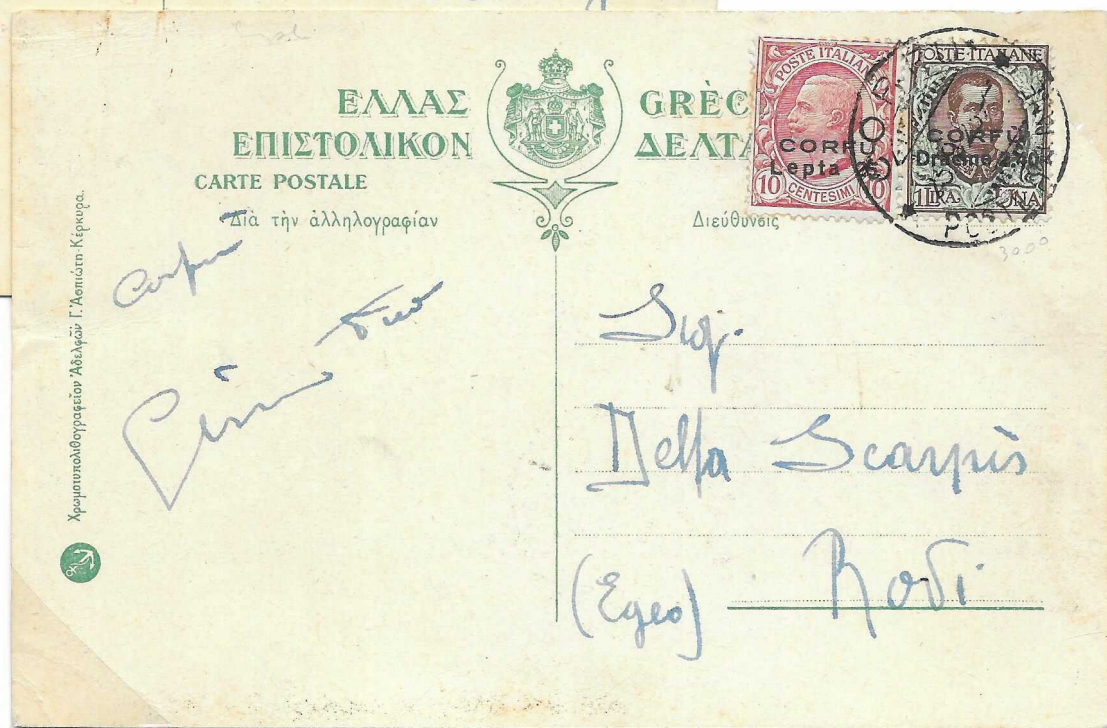 ΕΛΛΑΣ
GRÈC
ΕΠΙΣΤΟΛΙΚΟΝ
ΔΕΛΤΑ
CARTE POSTALE
Διὰ τὴν ἀλληλογραφίαν
Διεύθυνσις
POSTE ITALIANE
CORFÙ
Lepta
10 CENTESIMI 10
POSTE ITALIANE
CORFÙ
1 LIRA UNA
Χρωμοτυπολιθογραφεῖον Ἀδελφῶν Γ. Ἀσπιώτη-Κέρκυρα.
Corfu
Sig.
Della Scarpis
Rodi
(Egeo)
3000